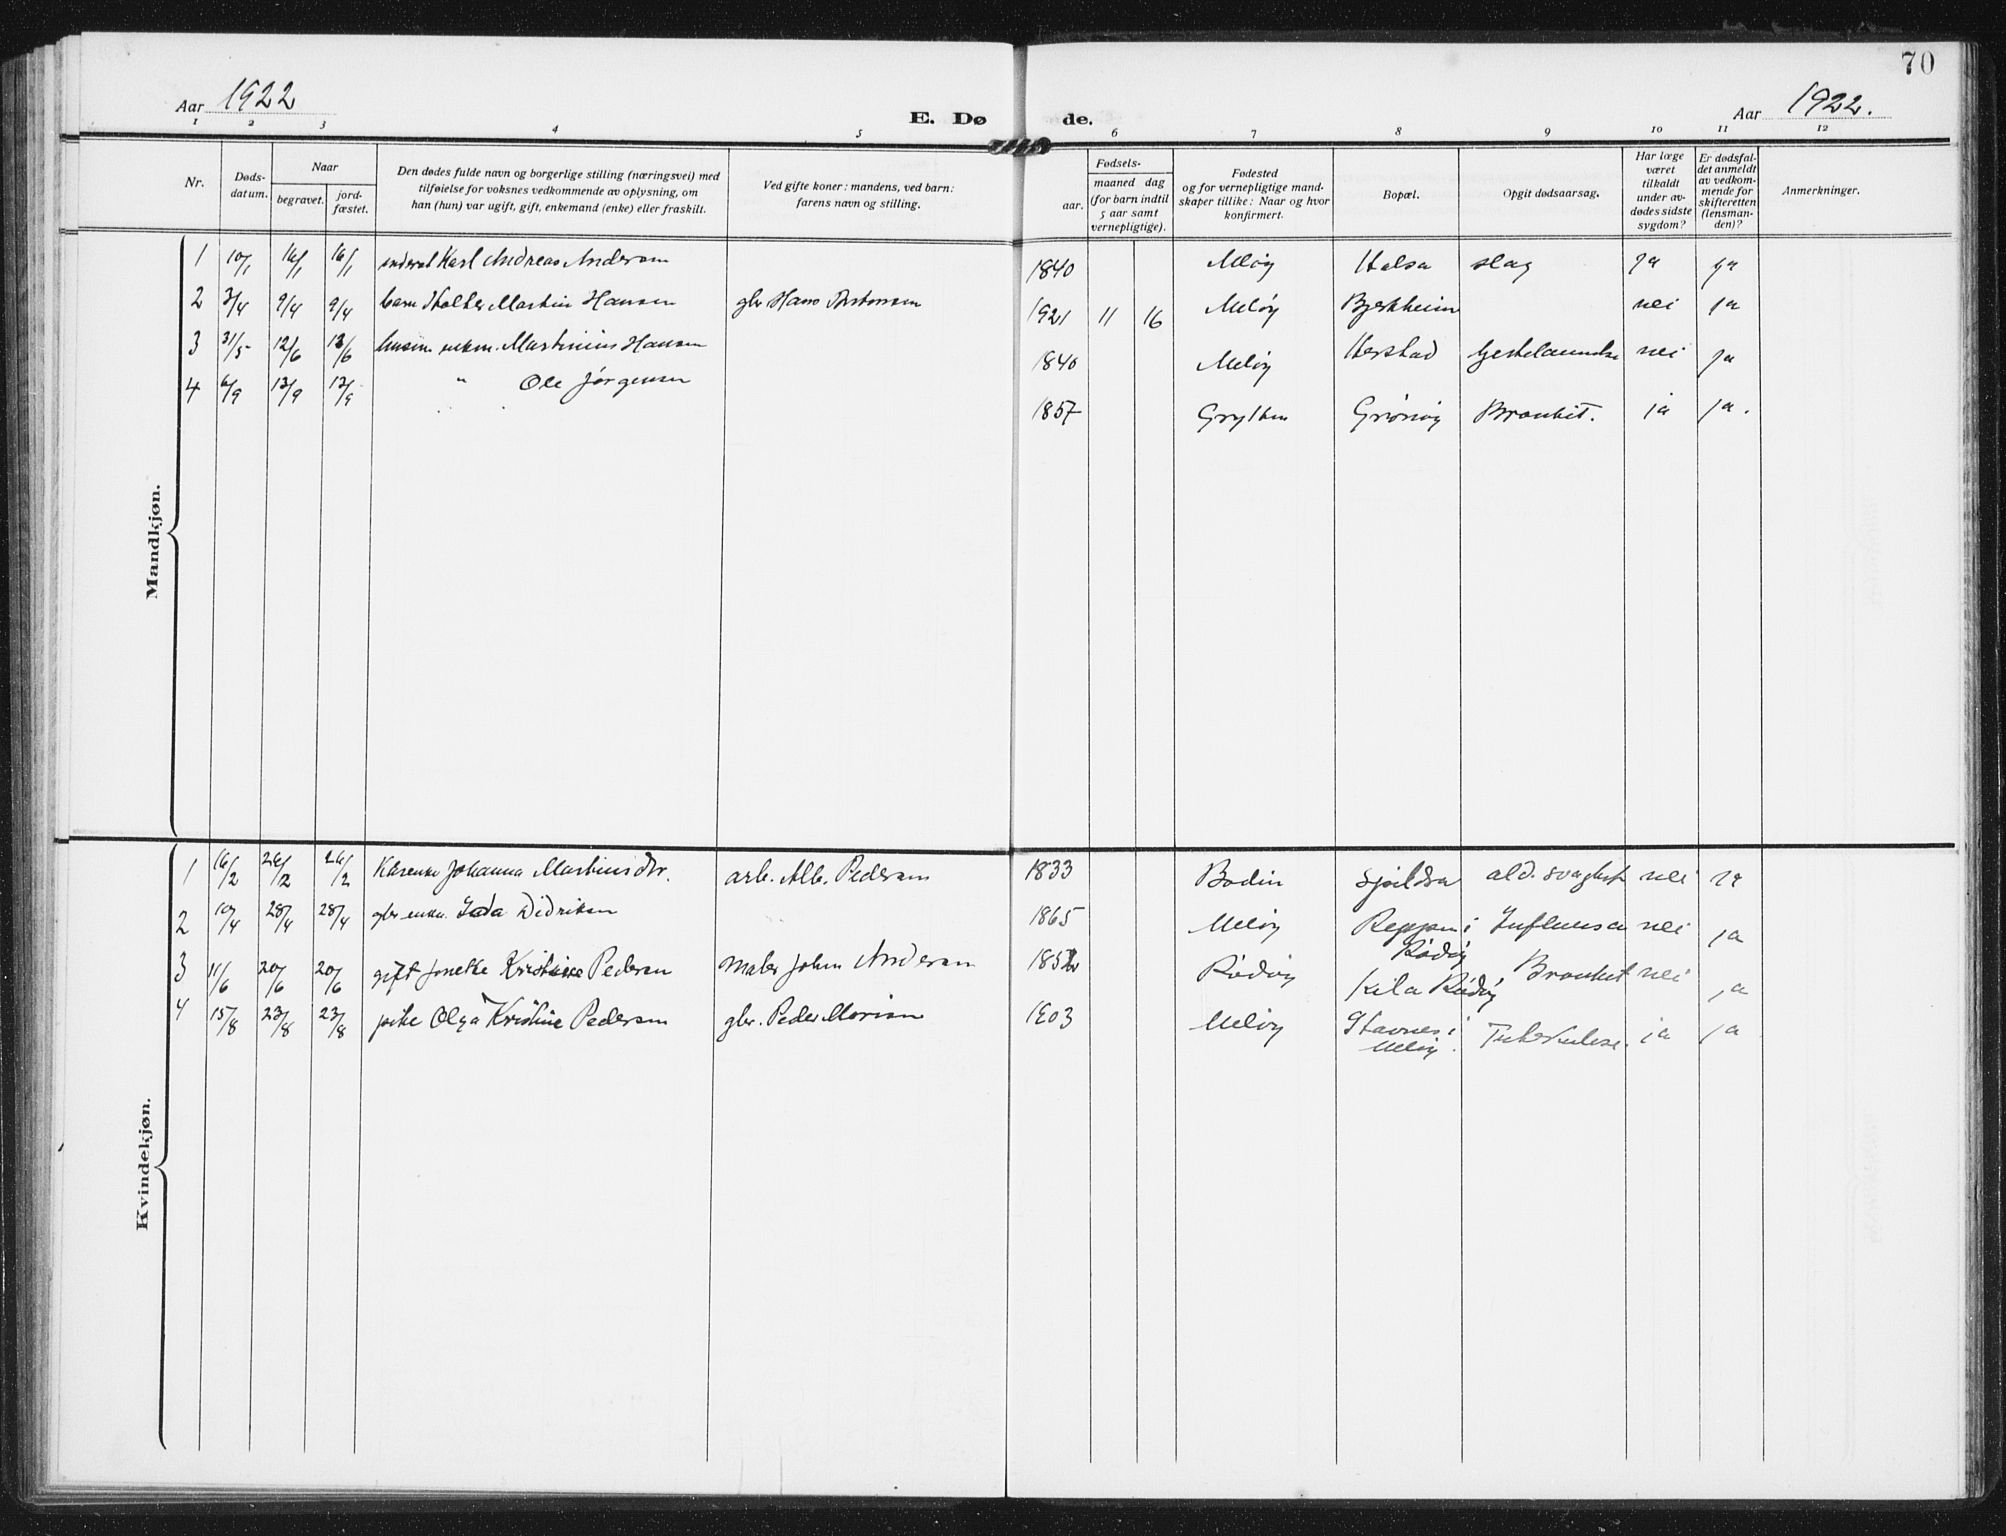 70
Aar 1922
E. Dø
de.
Aar 1922.
1 2 3 4 5 6 7 8 9 10 11 12
Nr.
Døds-
datum.
Naar
begravet.
jord-
fæstet.
Den dødes fulde navn og borgerlige stilling (næringsvei) med
tilføielse for voksnes vedkommende av oplysning, om
han (hun) var ugift, gift, enkemand (enke) eller fraskilt.
Ved gifte koner: mandens, ved barn:
farens navn og stilling.
Fødsels-
aar.
maaned dag
(for barn indtil
5 aar samt
vernepligtige).
Fødested
og for vernepligtige mand-
skaper tillike: Naar og hvor
konfirmert.
Bopæl.
Opgit dødsaarsag.
Har læge
været
tilkaldt
under av-
dødes sidste
sygdom?
Er dødsfal-
det anmeldt
av vedkom-
mende for
skifteretten
(lensman-
den)?
Anmerkninger.
Mandkjøn.
1 10/1 16/1 16/1 Karl Andreas Andersen 1840 Meløy Halsa slag ja ja
2 3/4 9/4 9/4 barn Martin Hansen gbr. Hans 1921 11 16 Meløy Bjerkheim nei ja
3 31/5 12/6 12/6 enkm. Martinius Hansen 1840 Meløy nei ja
4 6/9 12/9 12/9 " Ole Jørgensen 1857 Grytten Grønøy Bronkit. ja ja.
Kvindekjøn.
1 16/2 26/2 26/2 Johanna Martinsdtr. arb. Alb. Pedersen 1833 Bodin ald. svaghet nei ja
2 10/4 28/4 28/4 gbr enke. Didriksen 1865 Meløy Reppen i Rødøy Influensa nei ja
3 11/6 20/6 20/6 gift Kristine Pedersen maler Johan Andersen 1852 Rødøy Kila Rødøy Bronkit nei ja
4 15/8 23/8 23/8 pike Olga Kristine Pedersen gbr. Peder 1903 Meløy Stavnes i Meløy. Tuberkulose. ja ja